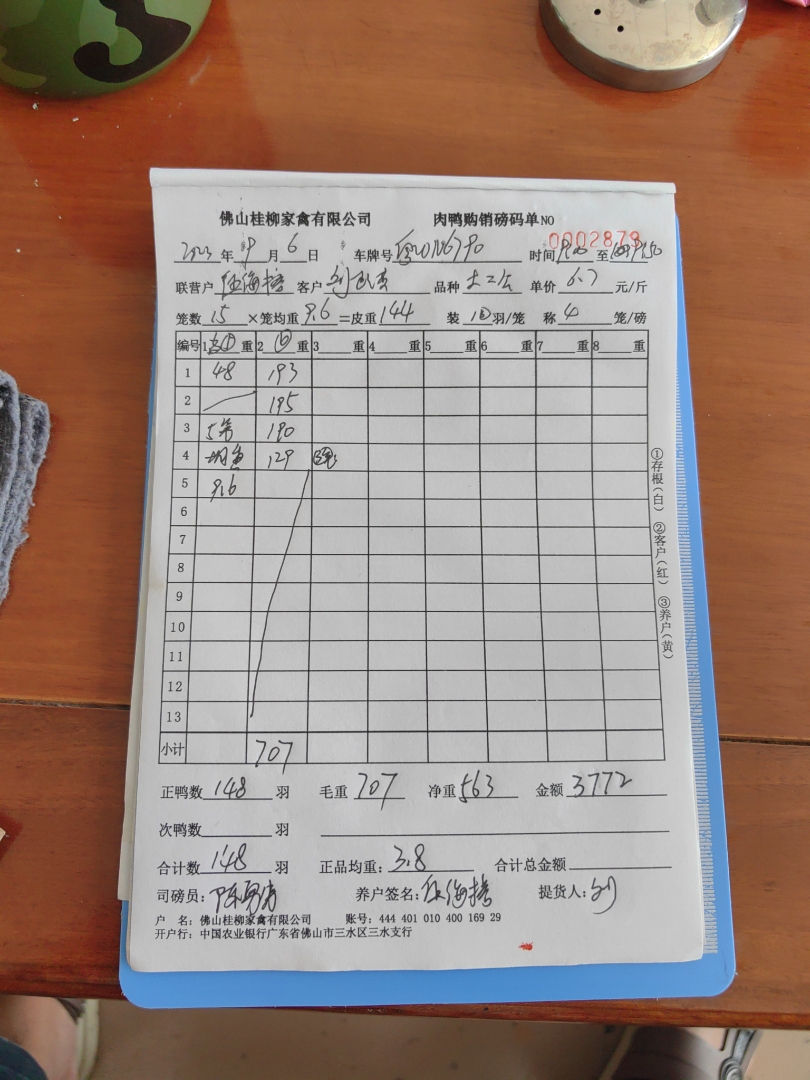 佛山桂柳家禽有限公司 肉鸭购销磅码单NO 0002879
2023 年 9 月 6 日 车牌号 时间 9:00 至 9:50
联营户 客户 品种 单价 6.7 元/斤
笼数 15 ×笼均重 9.6 =皮重 144 装 10 羽/笼 称 4 笼/磅
编号 1 重 2 重 3 重 4 重 5 重 6 重 7 重 8 重
1 48 193
2 195
3 190
4 129
5 9.6
6
7
8
9
10
11
12
13
小计 707
正鸭数 148 羽 毛重 707 净重 563 金额 3772
次鸭数 羽
合计数 148 羽 正品均重: 3.8 合计总金额
司磅员: 养户签名: 提货人: 刘
户 名: 佛山桂柳家禽有限公司 账号: 444 401 010 400 169 29
开户行: 中国农业银行广东省佛山市三水区三水支行
①存根(白) ②客户(红) ③养户(黄)